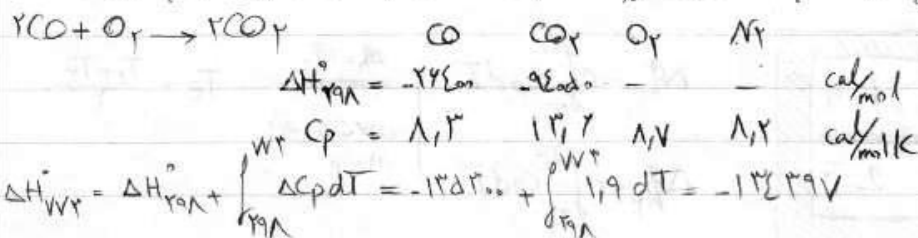 ۲CO + O۲ → ۲CO۲ CO CO۲ O۲ N۲
ΔH°۲۹۸ = -۲۶۴۰۰ -۹۴۰۵۰ - - cal/mol
Cp = ۸,۳ ۱۳,۶ ۸,۷ ۸,۲ cal/mol K
ΔH°۷۷۳ = ΔH°۲۹۸ + ∫۲۹۸^۷۷۳ ΔCp dT = -۱۳۵۳۰۰ + ∫۲۹۸^۷۷۳ ۱,۹ dT = -۱۳۴۳۹۷